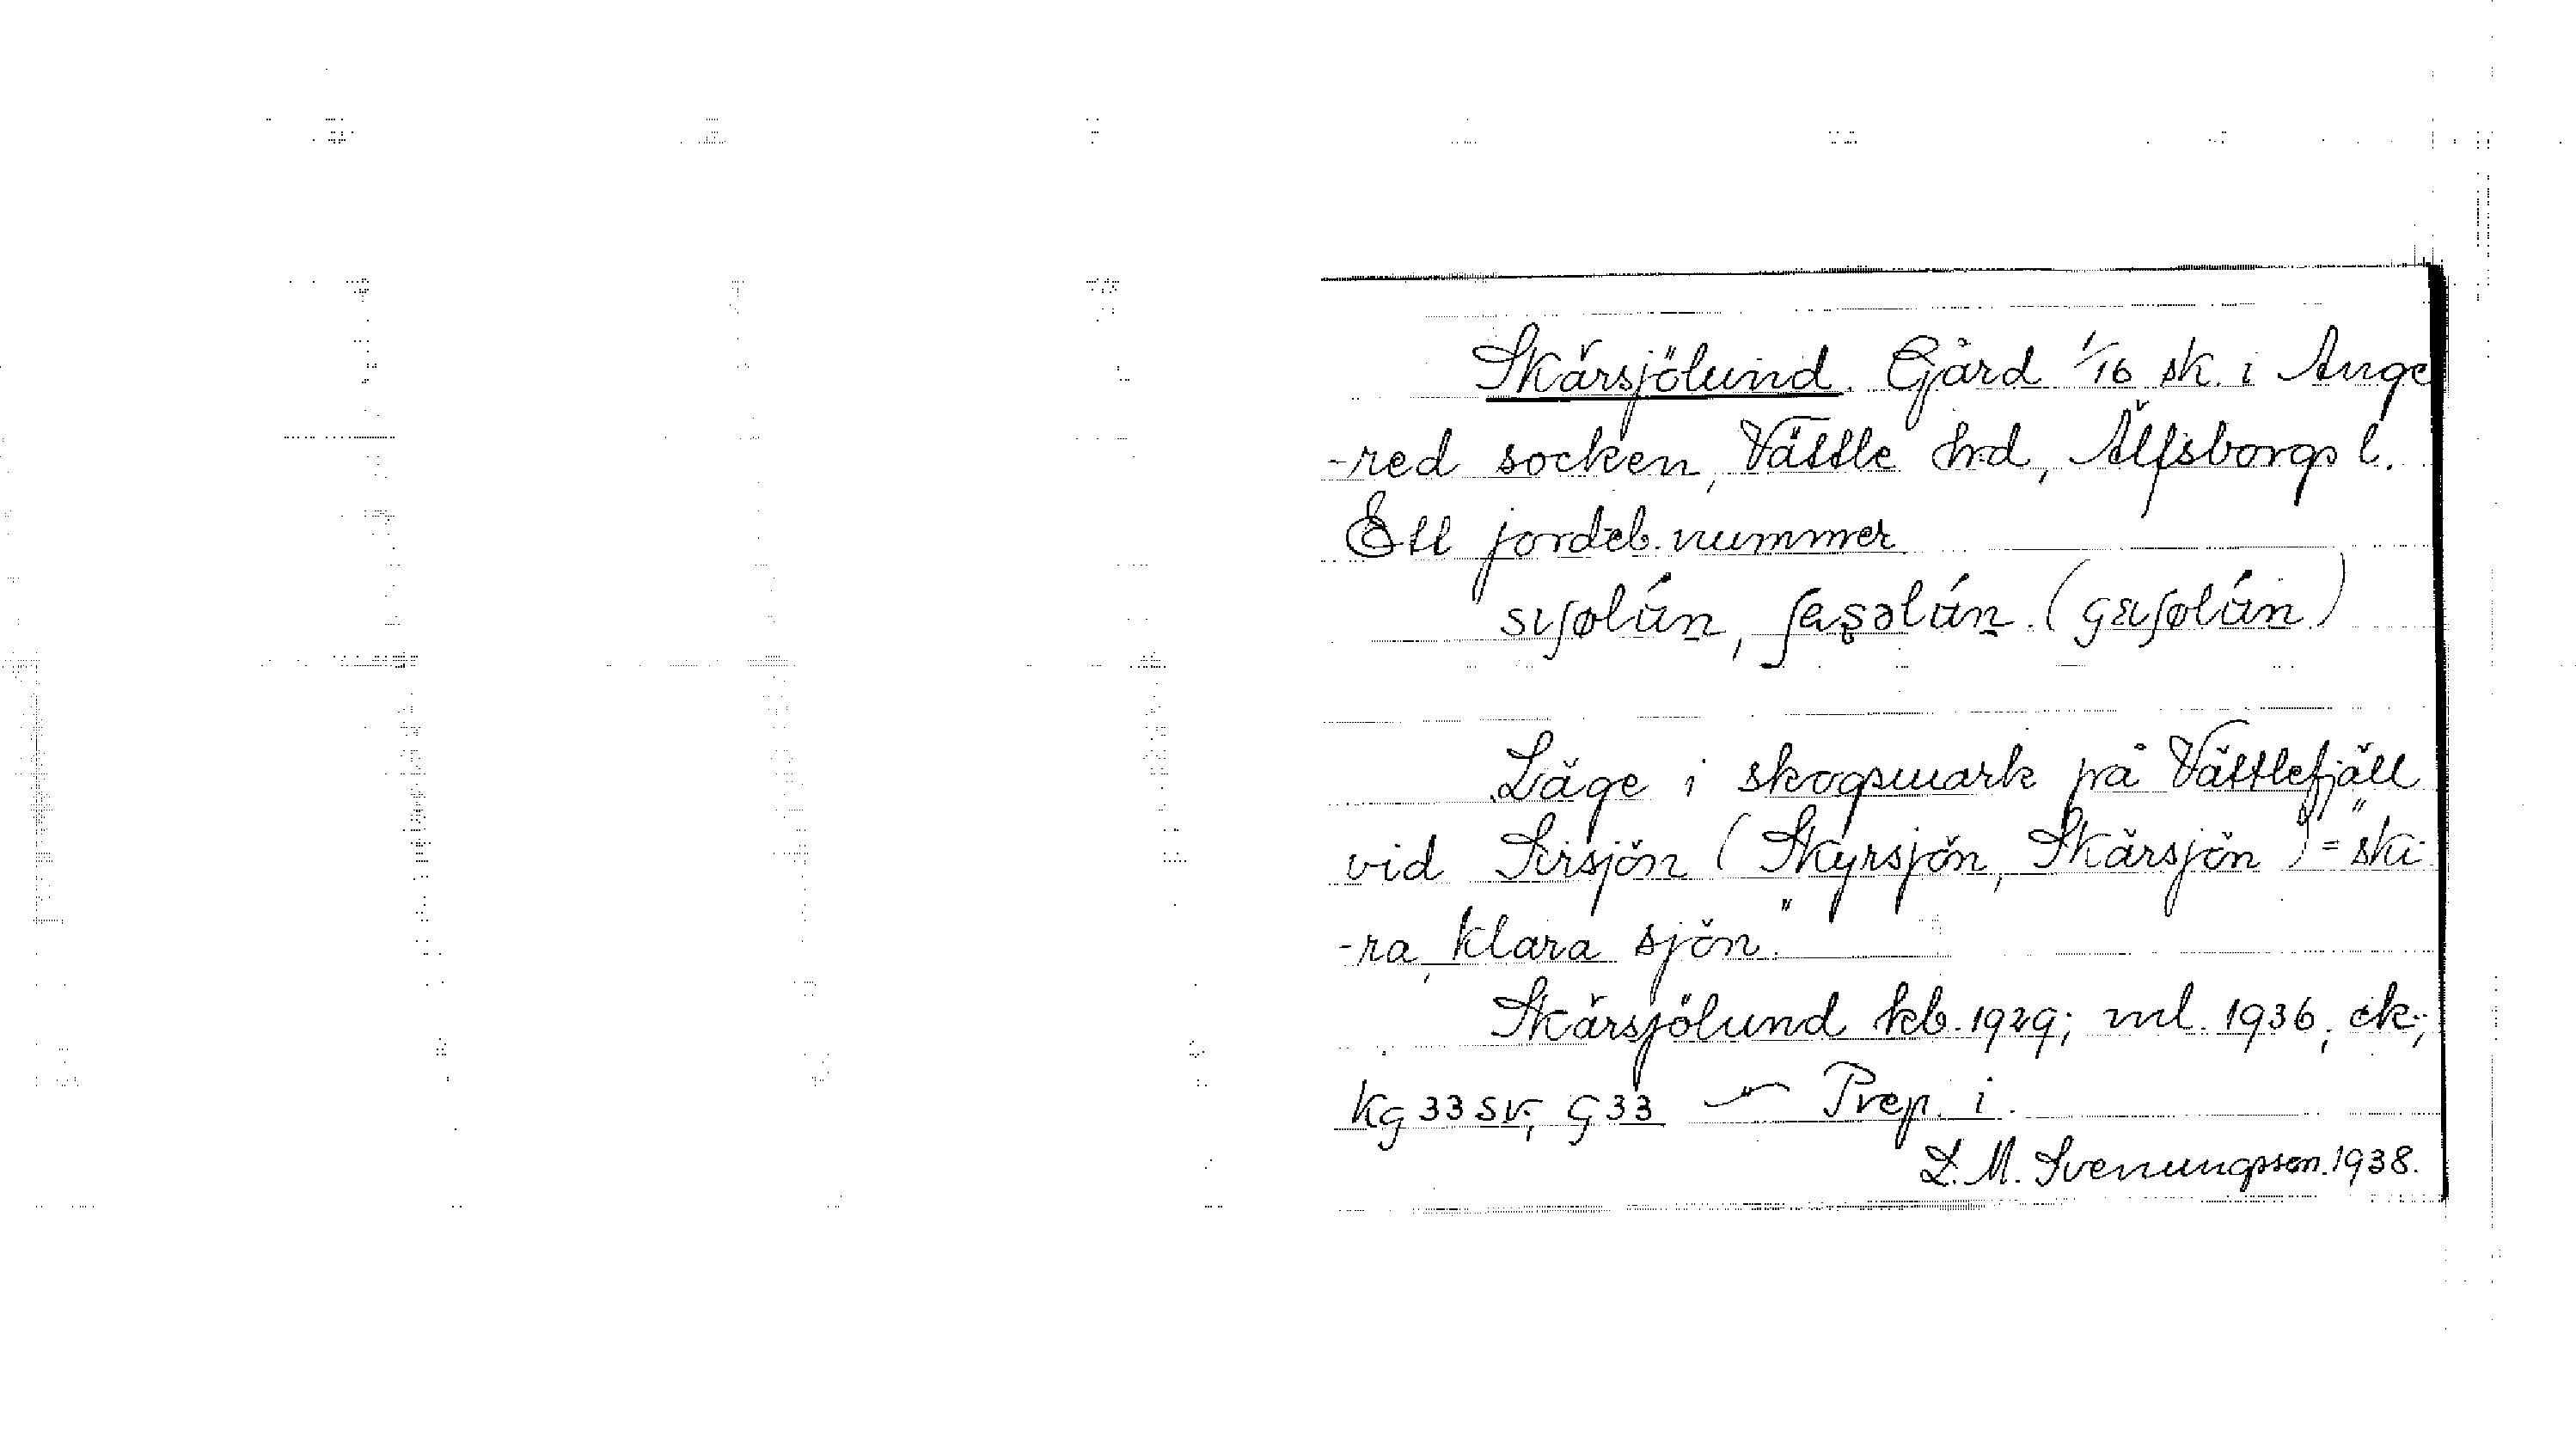 Skärsjölund. Gård 1/16 sk. i Ange
-red socken, Vättle hd, Älfsborgs l.
Ett jordeb. nummer
Läge i skogsmark på Vättlefjäll
vid Sirsjön (Skyrsjön, Skärsjön) = "ski-
-ra, klara sjön."
Skärsjölund kb. 1929; ml. 1936; ek;
Kg 33 SV; G 33 — Prep. i.
L. M. Svenungsson. 1938.